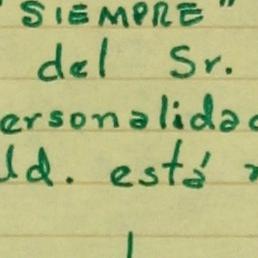 "SIEMPRE"
del Sr.
ersonalidad
Ud. está